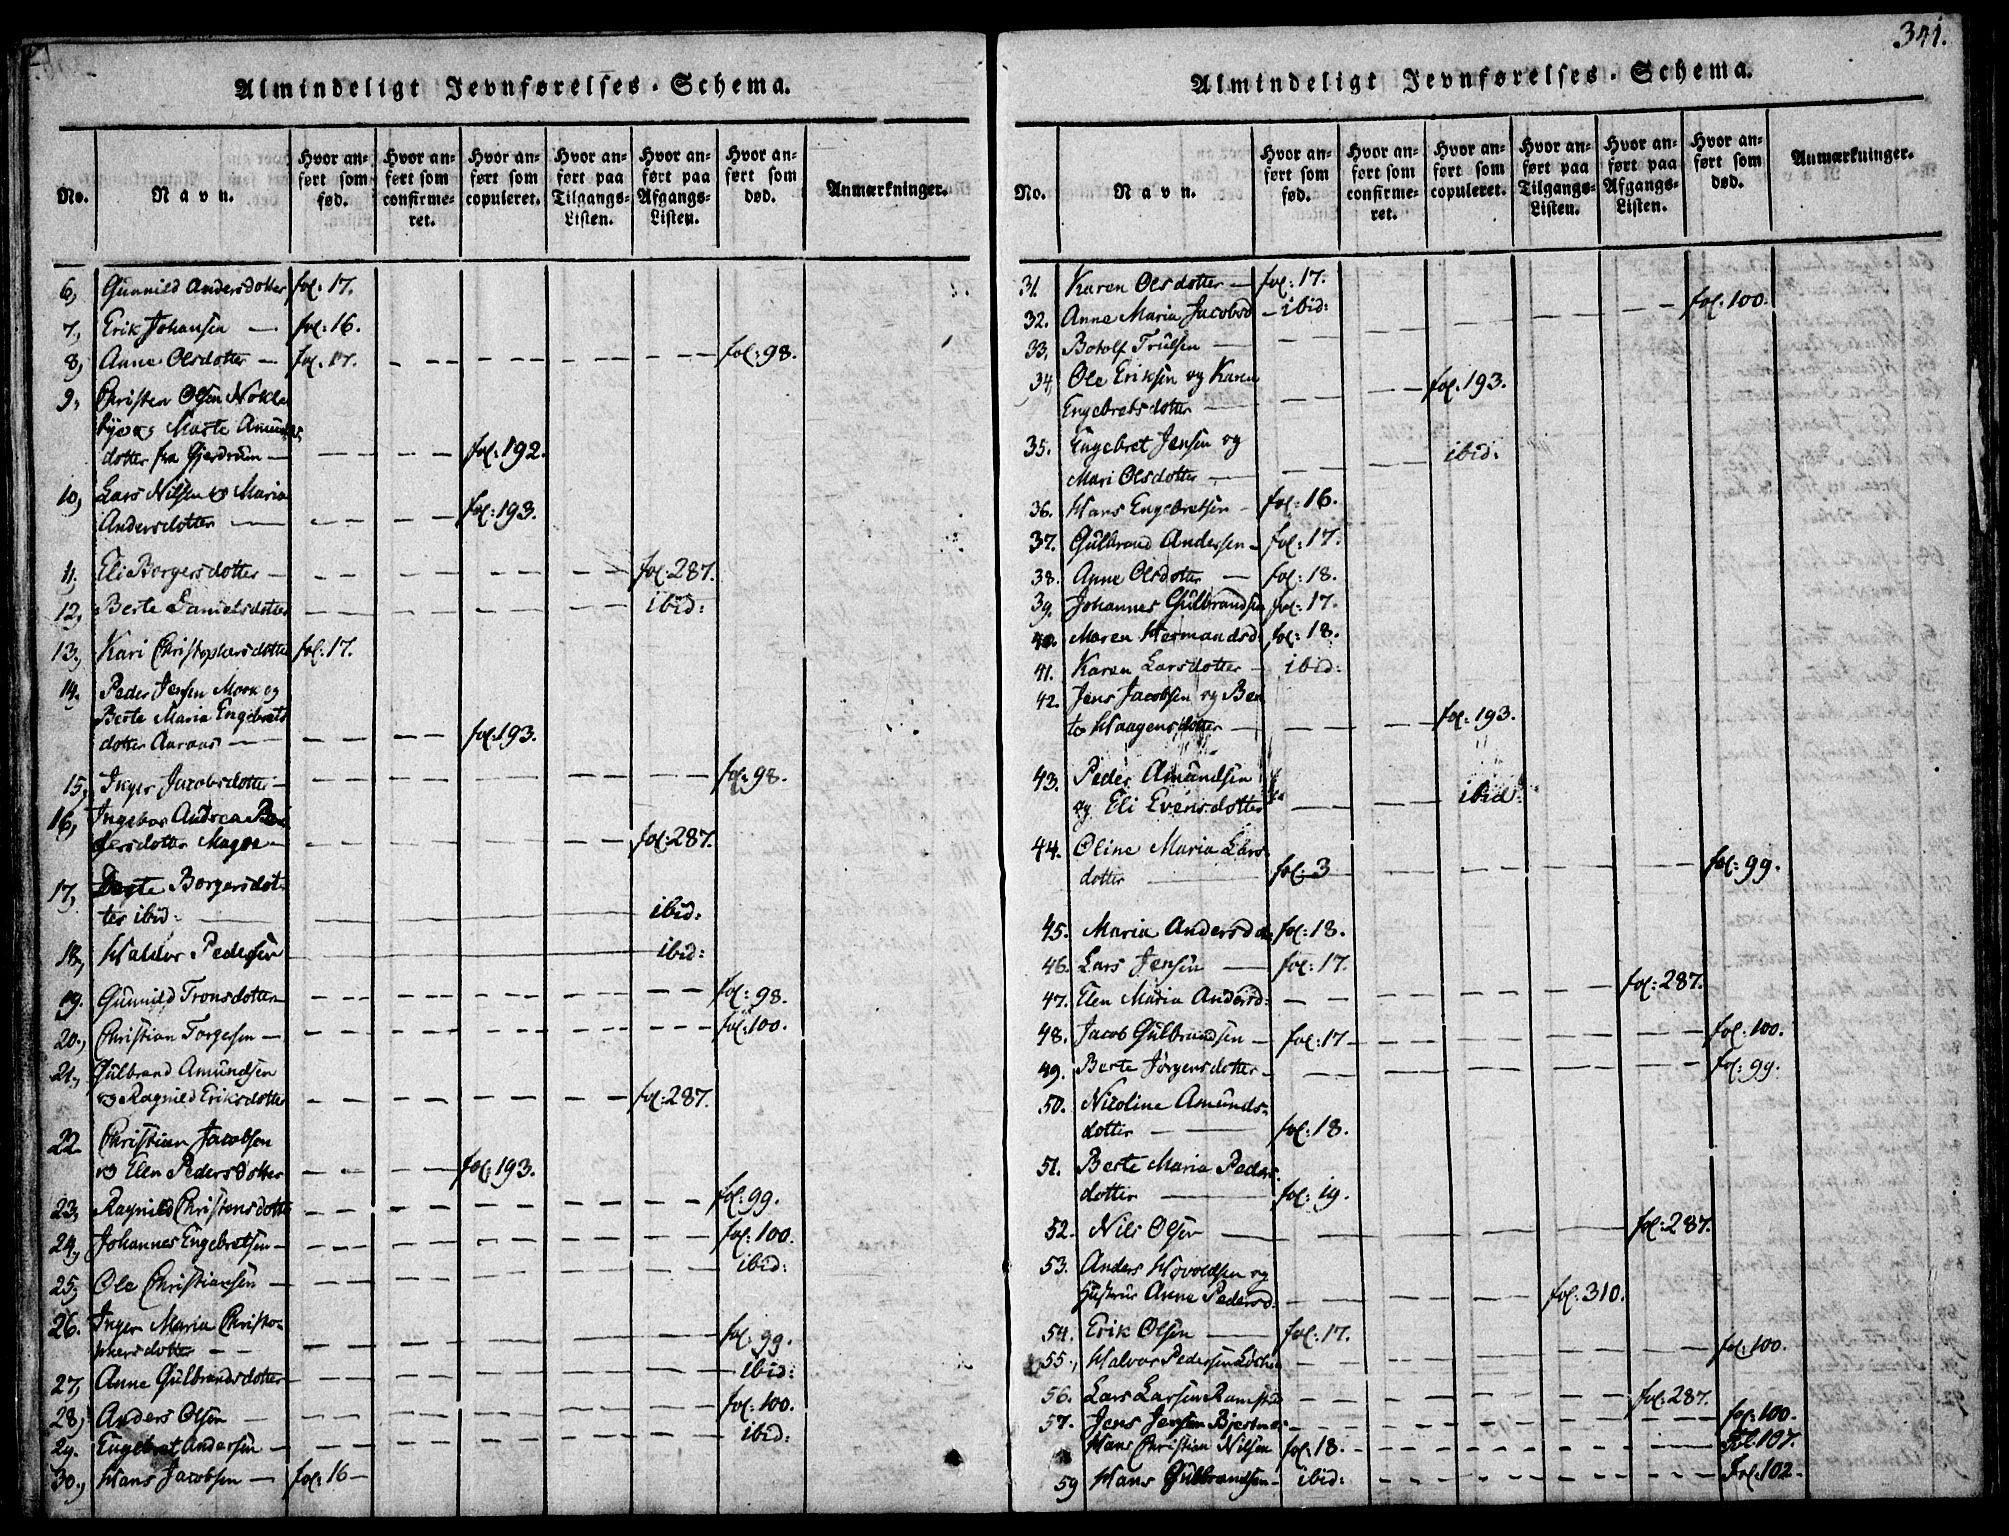 341.
Almindeligt Jevnførelses-Schema.
No. Navn. Hvor anført som fød. Hvor anført som confirmeret. Hvor anført som copuleret. Hvor anført paa Tilgangs-Listen. Hvor anført paa Afgangs-Listen. Hvor anført som død. Anmærkninger.
6, Gunnild Andersdotter fol: 17.
7, Erik Johansen — fol: 16.
8, Anne Olsdotter — fol: 17. — — — — fol: 98.
9, Christen Olsen Nokle
bye og Marte Amunds
dotter fra Gjerdrum — — — fol: 192.
10, Lars Nilsen og Maria
Andersdotter — — — fol: 193.
11. Eli Borgersdotter — — — — fol: 287.
12, Berte Danielsdotter — — — — ibid:
13, Kari Christophersdotter fol: 17.
14. Peder Jensen Moen og
Berte Maria Engebrets
dotter Aaraas — — — fol: 193.
15, Inger Jacobsdotter — — — — fol: 98.
16, Ingebor Andrea
gersdotter — — — — fol: 287.
17, Berte Borgersdot
ter ibid: — ibid:
18, Haldor Pedersen — ibid:
19. Gunnild Tronsdotter — — — — fol: 98.
20, Christian Torgesen — — — — fol: 100.
21, Gulbrand Amundsen
og Ragnild Eriksdotter — — — — fol: 287.
22. Christian Jacobsen
og Elen Pedersdotter — — — fol: 193.
23, Ragnild Christensdotter — — — — fol: 99.
24, Johannes Engebretsen — — — — fol: 100.
25, Ole Christiansen — — — — ibid:
26. Inger Maria Christo-
phersdotter — — — — fol: 99.
27, Anne Gulbrandsdotter — — — — ibid:
28, Anders Olsen — — — — fol: 100.
29. Engebret Andersen — — — — ibid:
30, Hans Jacobsen — fol: 16 —
Almindeligt Jevnførelses-Schema.
No. Navn. Hvor anført som fød. Hvor anført som confirmeret. Hvor anført som copuleret. Hvor anført paa Tilgangs-Listen. Hvor anført paa Afgangs-Listen. Hvor anført som død. Anmærkninger.
31. Karen Olsdotter — fol: 17.
32. Anne Maria Jacobsd — ibid: — — — — fol: 100.
33, Botolf Trulsen — — —
34, Ole Eriksen og Karen
Engebretsdotter — — — fol: 193.
35. Engebret Jensen og
Mari Olsdotter — — — ibid:
36. Hans Engebretsen — fol: 16.
37. Gulbrand Andersen — fol: 17.
38. Anne Olsdotter — fol: 18.
39. Johannes Gulbrandsen fol: 17.
40. Maren Hermandsd. fol: 18.
41. Karen Larsdotter — ibid:
42. Jens Jacobsen og Ber
te Haagensdotter — — — fol: 193.
43. Peder Amundsen
og Eli Evensdotter — — ibid:
44. Oline Maria Lars
dotter — fol: 3 — — — — fol: 99.
45. Maria Andersdot. fol: 18.
46. Lars Jensen — fol: 17.
47. Elen Maria Andersd: — — — — fol: 287.
48. Jacob Gulbrandsen — fol: 17 — — — — fol: 100.
49. Berte Jørgensdotter — — — — fol: 99.
50. Nicoline Amunds-
dotter — fol: 18.
51. Berte Maria Peders
dotter — fol: 19.
52. Nils Olsen — — — — fol: 287.
53. Anders Hovoldsen og
Hustrue Anne Pedersd. — — — fol: 310.
54. Erik Olsen — fol: 17.
55, Halvor Pedersen — — — — fol: 100.
56. Lars Larsen Ramstad — — — — fol: 287.
57. Jens Jensen — — — — fol: 100.
Hans Christian Nilsen fol: 18. — — — — Fol. 107.
59 Hans Gulbrandsen — ibid: — — — — Fol. 102.